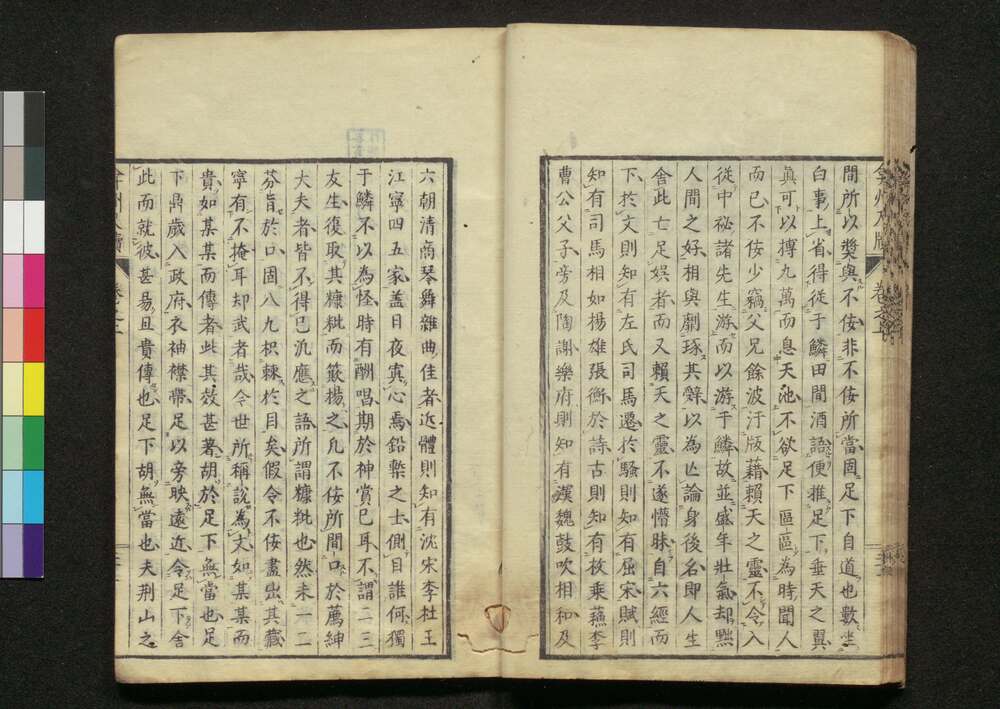 間所以奬與不佞非不佞所當固足下自道也數坐
白事上省得從于鱗田間酒語便推足下垂天之翼
真可以摶九萬而息天池不欲足下區區為時聞人
而已不佞少竊父兄餘波汙版藉賴天之靈不令入
從中祕諸先生游而以游于鱗故並盛年壯氣却黜
人間之好相與劘琢其辤以為亾論身後名即人生
舍此亡足娯者而又賴天之靈不遂懵昧自六經而
下於文則知有左氏司馬遷於騷則知有屈宋賦則
知有司馬相如揚雄張衡於詩古則知有枚乗蘓李
曹公父子旁及陶謝樂府則知有漢魏鼓吹相和及
六朝清商琴舞雜曲佳者近體則知有沈宋李杜王
江寧四五家盖日夜寘心焉鉛槧之士側目誰何獨
于鱗不以為怪時有酬唱期於神賞已耳不謂二三
友生復取其糠粃而簸揚之凡不佞所間口於薦紳
大夫者皆不得已汎應之語所謂糠粃也然未一二
芬旨於口固八九枳棘於目矣假令不佞盡出其藏
寧有不掩耳却武者哉今世所稱說為文如某某而
貴如某某而傳者此其效甚著胡於足下無當也足
下鼎歲入政府衣袖襟帶足以旁映遠近令足下舍
此而就彼甚易且貴傳也足下胡無當也夫荆山之